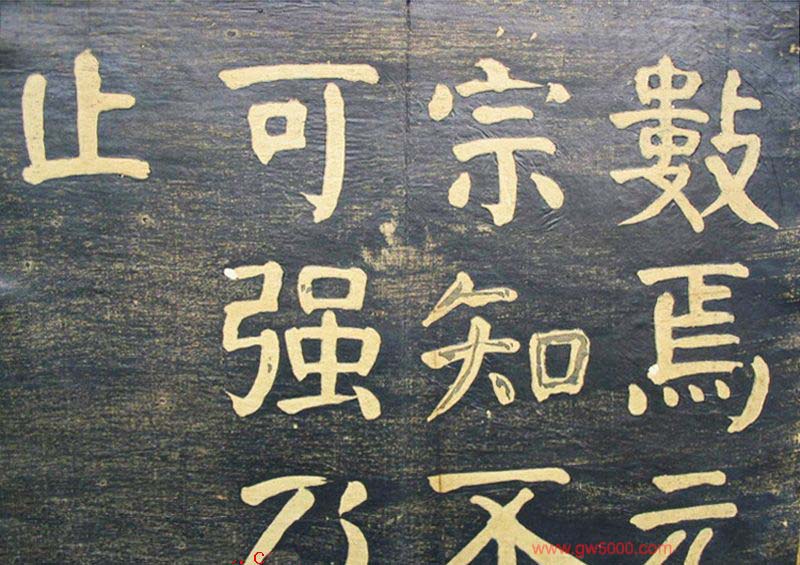 數焉元
宗知不
可强乃
止
www.gw5000.com